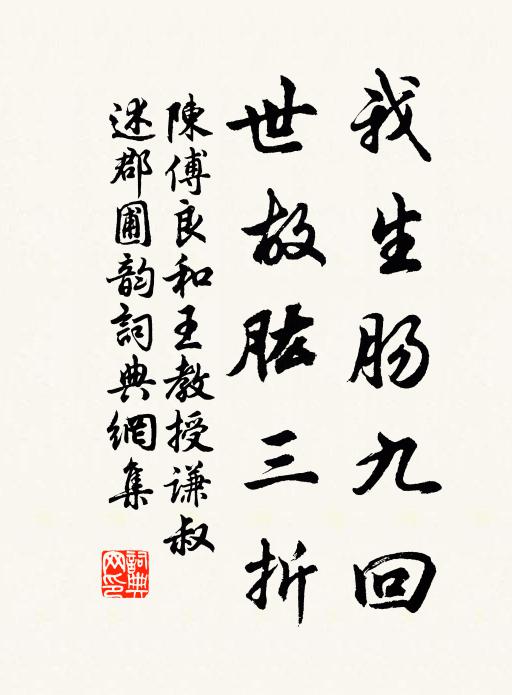 我生肠九回
世故肱三折
陳傅良和王教授謙叔
述郡圃韵詞典網集
詞典網印